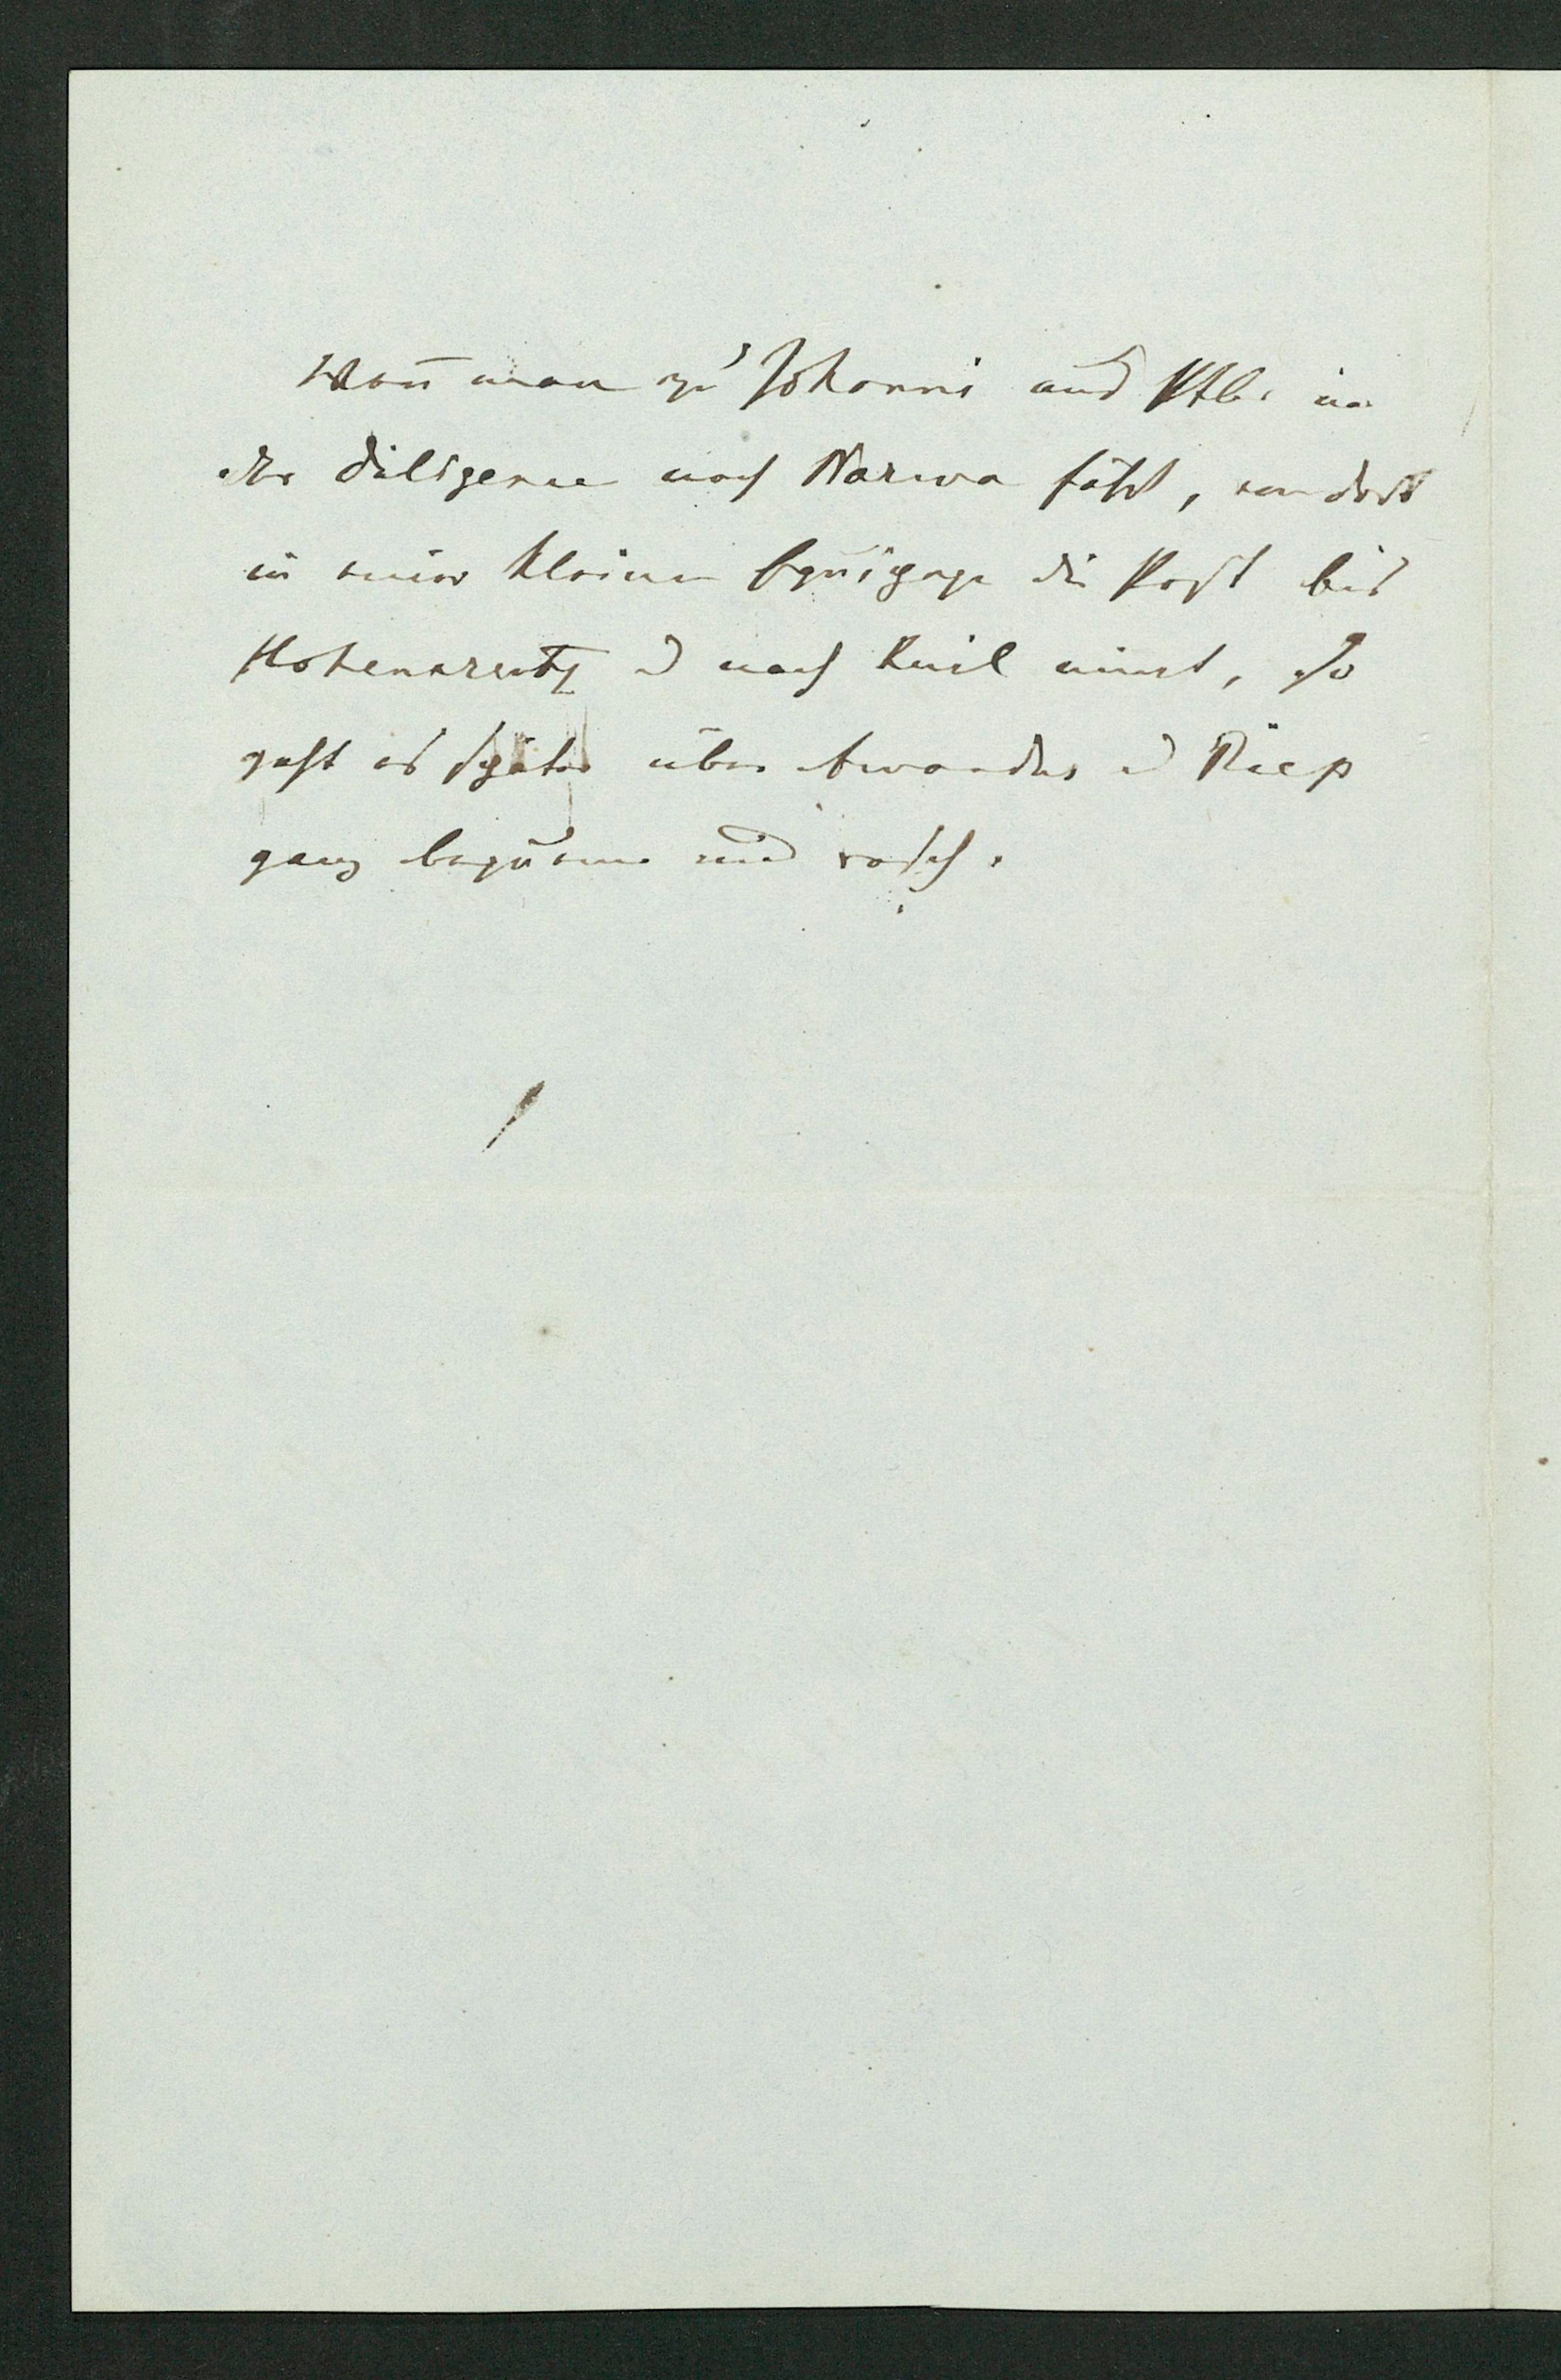 Wenn man zu Johanni aus Ptbr in
der Diligence nach Narwa fährt, von dort
in einer kleinen Equipage die Post bis
Hohenkreutz u nach Kuil nimt, so
geht es später über Awandus u Piep
ganz bequem und rasch.